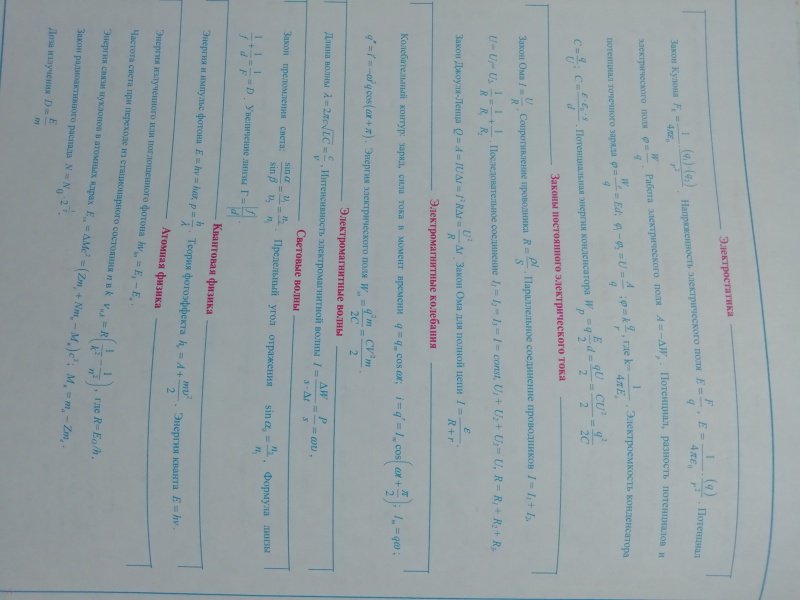 Электростатика
Закон Кулона F_k = 1/(4πε_0) · (q_1)·(q_2)/r^2. Напряженность электрического поля E = F/q, E = 1/(4πE_0) · (q)/r^2. Потенциал
электрического поля φ = W/q. Работа электрического поля A = -ΔW_p. Потенциал, разность потенциалов и
потенциал точечного заряда φ = W_p/q = Ed; φ_1 - φ_2 = U = A/q; φ = k q/r, где k = 1/(4πE_0). Электроемкость конденсатора
C = q/U; C = ε·ε_0·s/d. Потенциальная энергия конденсатора W_p = q E/2 d = qU/2 = CU^2/2 = q^2/2C
Законы постоянного электрического тока
Закон Ома I = U/R. Сопротивление проводника R = ρl/S. Параллельное соединение проводников I = I_1 + I_2,
U = U_1 = U_2 1/R = 1/R_1 + 1/R_2. Последовательное соединение I_1 = I_2 = I_3 = I = const, U_1 + U_2 + U_3 = U, R = R_1 + R_2 + R_3.
Закон Джоуля-Ленца Q = A = IUΔt = I^2RΔt = U^2/R Δt Закон Ома для полной цепи I = ε/(R + r)
Электромагнитные колебания
Колебательный контур: заряд, сила тока в момент времени q = q_m cos ωt; i = q' = I_m cos(ωt + π/2); I_m = qω;
q" = i' = -ω^2 q cos(ωt + π); Энергия электрического поля W_эл = q^2m/2C = CV^2m/2
Электромагнитные волны
Длина волны λ = 2πc√LC = c/ν, Интенсивность электромагнитной волны I = ΔW/(s·Δt) = P/s = ωυ,
Световые волны
Закон преломления света: sin α/sin β = υ_1/υ_2 = n_2/n_1. Предельный угол отражения sin α_0 = n_2/n_1, Формула линзы
1/f + 1/d = 1/F = D. Увеличение линзы Γ = |f|/|d|.
Квантовая физика
Энергия и импульс фотона E = hν = hω, p = h/λ. Теория фотоэффекта h_ν = A + mυ^2/2. Энергия кванта E = hν.
Атомная физика
Энергия излученного или поглощенного фотона hν_kn = E_k - E_n.
Частота света при переходе из стационарного состояния n в k ν_n,k = R(1/k^2 - 1/n^2), где R=E_0/h.
Энергия связи нуклонов в атомных ядрах E_св = ΔMc^2 = (Zm_p + Nm_n - M_я)c^2; M_я = m_a - Zm_e.
Закон радиоактивного распада N = N_0 · 2^(-t/T).
Доза излучения D = E/m